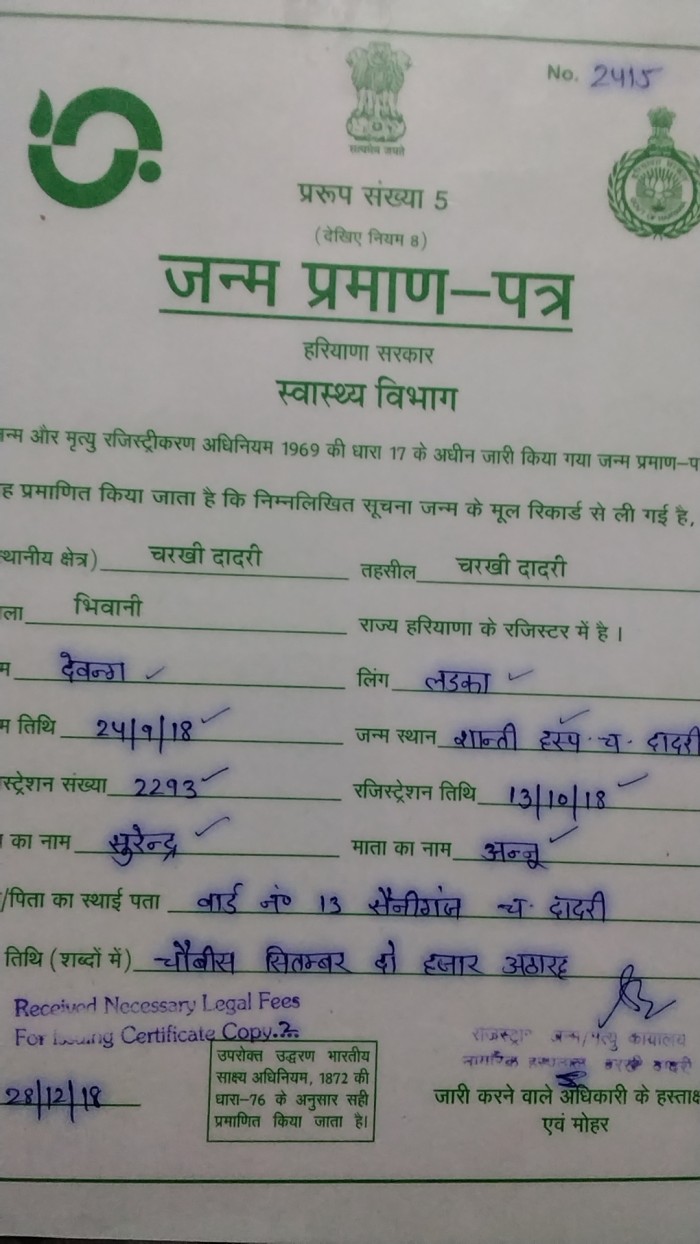 No. 2415
सत्यमेव जयते
प्ररूप संख्या 5
(देखिए नियम 8)
जन्म प्रमाण–पत्र
हरियाणा सरकार
स्वास्थ्य विभाग
न्म और मृत्यु रजिस्ट्रीकरण अधिनियम 1969 की धारा 17 के अधीन जारी किया गया जन्म प्रमाण–प
ह प्रमाणित किया जाता है कि निम्नलिखित सूचना जन्म के मूल रिकार्ड से ली गई है,
थानीय क्षेत्र) चरखी दादरी तहसील चरखी दादरी
ला भिवानी राज्य हरियाणा के रजिस्टर में है ।
म देवन्ग लिंग लडका
म तिथि 24/9/18 जन्म स्थान शान्ती हस्प. च. दादरी
स्ट्रेशन संख्या 2293 रजिस्ट्रेशन तिथि 13/10/18
का नाम सुरेन्द्र माता का नाम अन्नू
/पिता का स्थाई पता वार्ड नं० 13 सैनीगंज च. दादरी
तिथि (शब्दों में) चौबीस सितम्बर दो हजार अठारह
Received Necessary Legal Fees
For Issuing Certificate Copy.2.
उपरोक्त उद्धरण भारतीय
साक्ष्य अधिनियम, 1872 की
धारा–76 के अनुसार सही
प्रमाणित किया जाता है।
28/12/18
जन्म/मृत्यु
जारी करने वाले अधिकारी के हस्ताक्ष
एवं मोहर